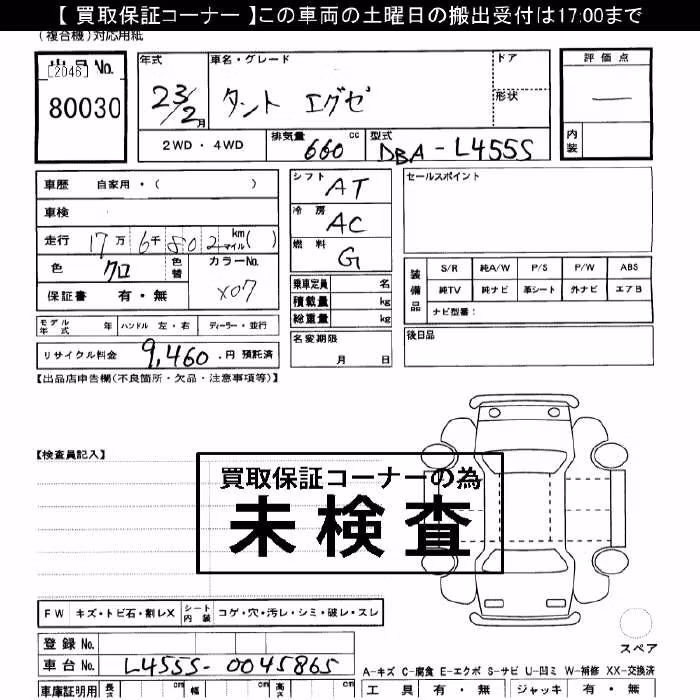 【 買取保証コーナー 】この車両の土曜日の搬出受付は17:00まで
(複合機)対応用紙
出品No.
[2046]
80030
年式 23/2月
車名・グレード タント エグゼ
ドア
形状
評価点
内装
2WD・4WD
排気量 660 cc
型式 DBA-L455S
車歴 自家用・( )
車検
走行 17万6千802 km マイル ( )
色 クロ
色替
カラーNo. X07
保証書 有・無
モデル年式 年 ハンドル 左・右 ディーラー・並行
リサイクル料金 9,460.円 預託済
シフト AT
冷房 AC
燃料 G
乗車定員 名
積載量 kg
総重量 kg
名変期限
月 日
セールスポイント
装備品
S/R 純A/W P/S P/W ABS
純TV 純ナビ 革シート 外ナビ エアB
ナビ型番:
後日品
【出品店申告欄(不良箇所・欠品・注意事項等)】
【検査員記入】
買取保証コーナーの為
未検査
FW キズ・トビ石・割レX
シート内装 コゲ・穴・汚レ・シミ・破レ・スレ
スペア
登録No.
車台No. L455S-0045865
A-キズ C-腐食 E-エクボ S-サビ U-凹ミ W-補修 XX-交換済
車庫証明用 長さ cm 幅 cm 高さ cm
工具 有・無 ジャッキ 有・無